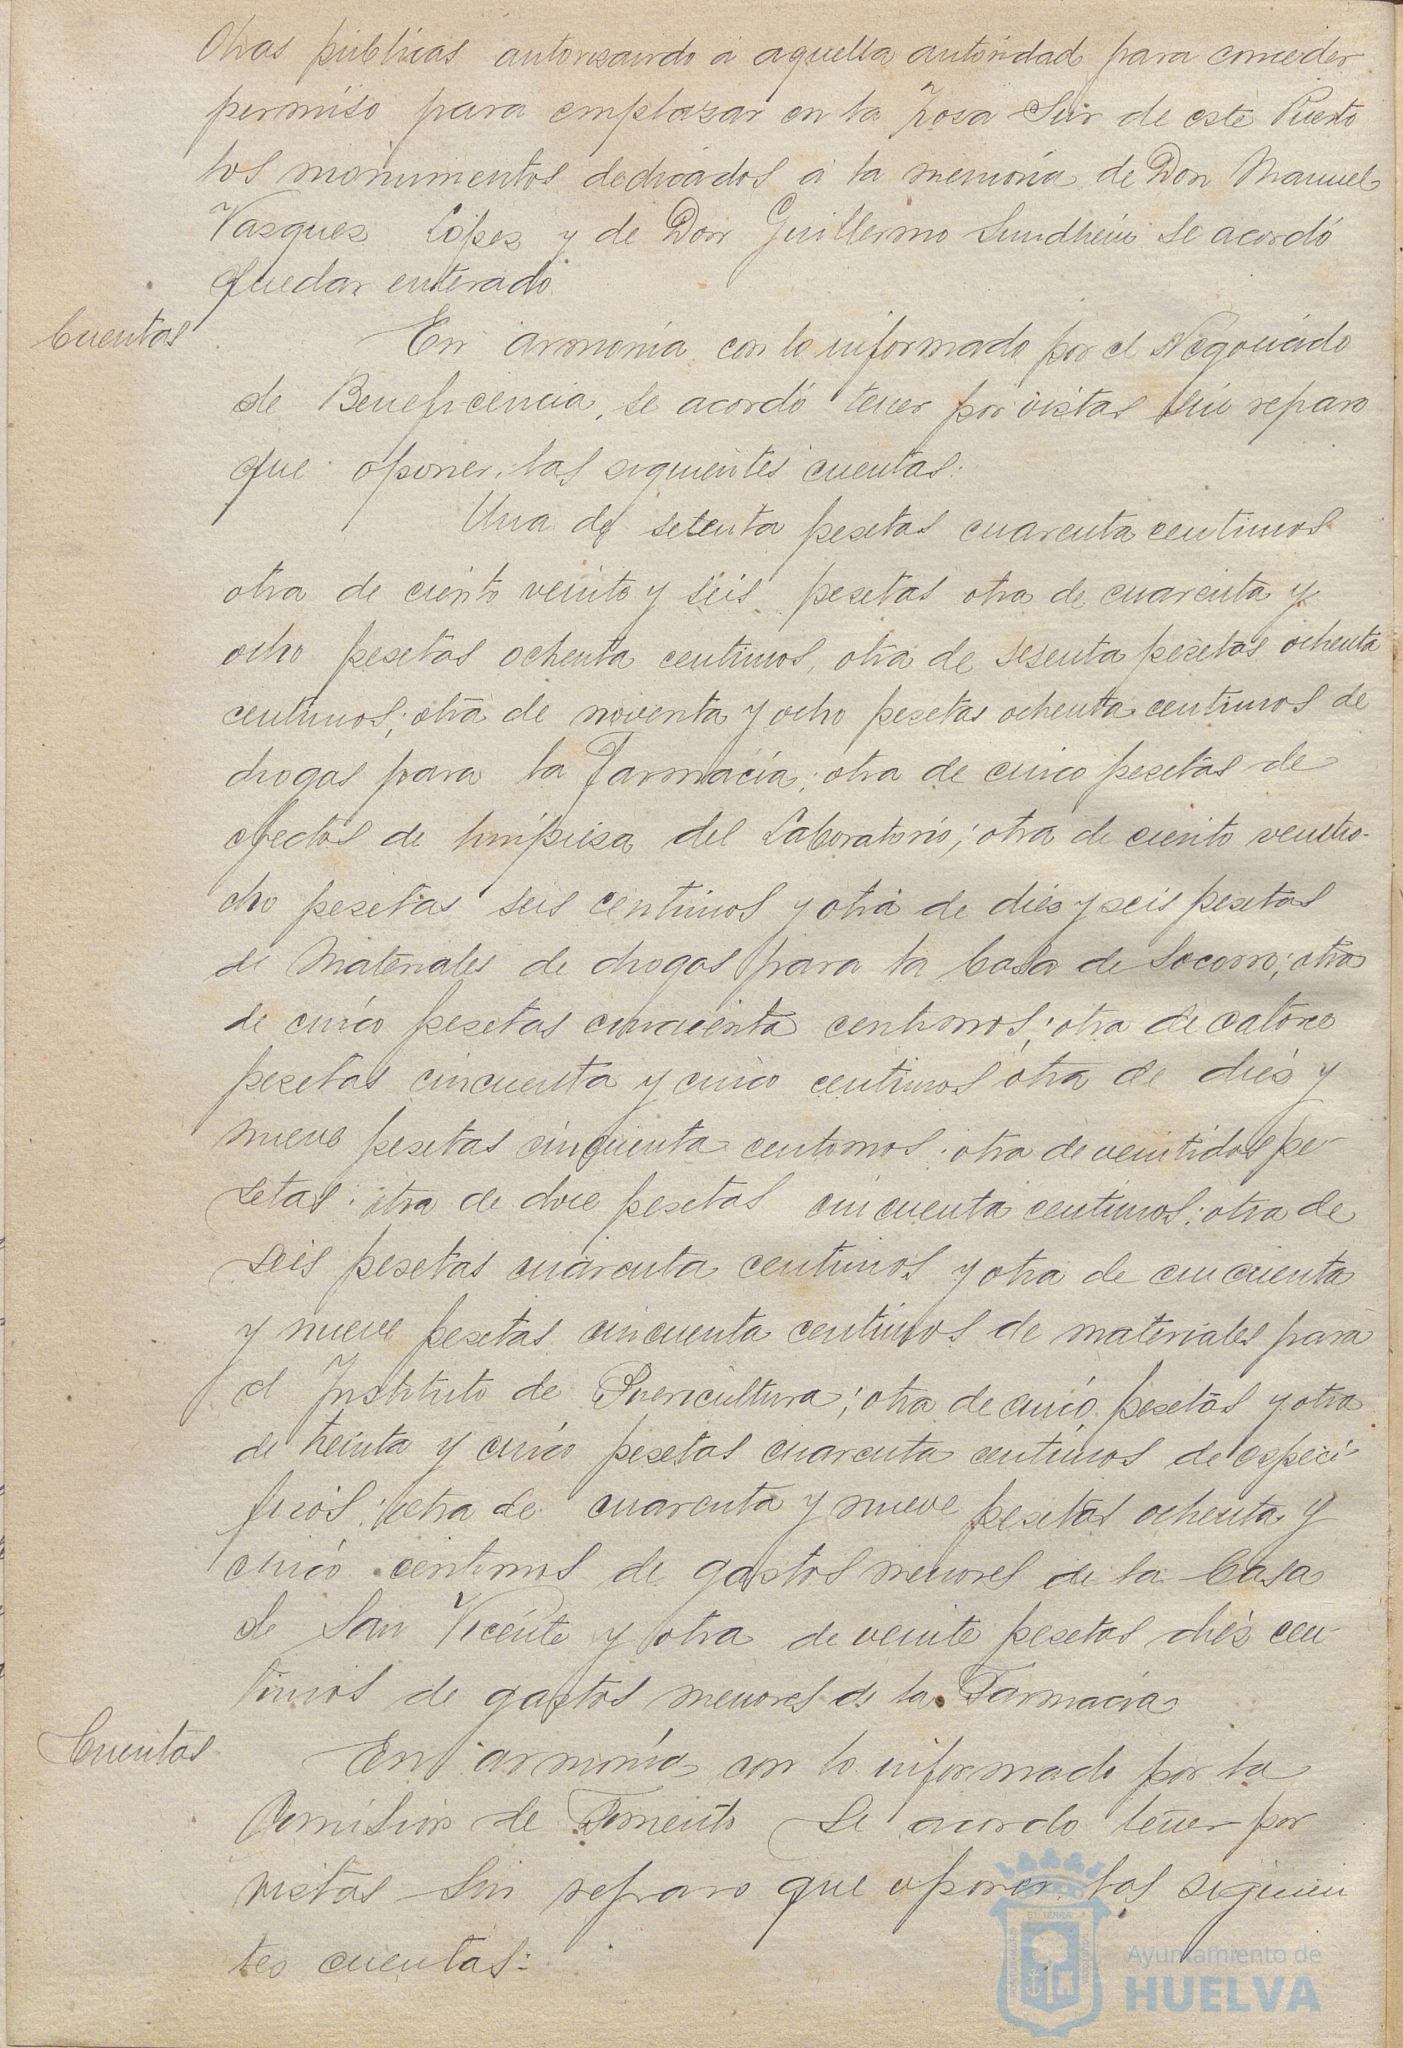 Obras públicas autorizando á aquella autoridad para conceder
permiso para emplazar en la Zona Sur de este Puerto
los monumentos dedicados á la memoria de Don Manuel
Vasquez López y de Don Guillermo Sundhein se acordó
quedar enterado
Cuentas
En armonía con lo informado por el Negociado
de Beneficencia, se acordó tener por vistas sin reparo
que oponer, las siguientes cuentas:
Una de setenta pesetas cuarenta centimos
otra de ciento veinte y seis pesetas otra de cuarenta y
ocho pesetas ochenta centimos, otra de sesenta pesetas ochenta
centimos; otra de noventa y ocho pesetas ochenta centimos de
drogas para la Farmacia; otra de cinco pesetas de
efectos de limpieza del Laboratorio; otra de ciento veintio-
cho pesetas seis centimos y otra de diez y seis pesetas
de Materiales de drogas para la Casa de Socorro; otra
de cinco pesetas cincuenta centimos; otra de catorce
pesetas cincuenta y cinco centimos otra de diez y
nueve pesetas cincuenta centimos; otra de veintidos pe-
setas; otra de doce pesetas cincuenta centimos; otra de
seis pesetas cuarenta centimos y otra de cincuenta
y nueve pesetas cincuenta centimos de materiales para
el Instituto de Puericultura; otra de cinco pesetas y otra
de treinta y cinco pesetas cuarenta centimos de especí-
ficos; otra de cuarenta y nueve pesetas ochenta y
cinco centimos de gastos menores de la Casa
de San Vicente y otra de veinte pesetas diez cen-
timos de gastos menores de la Farmacia
Cuentas
En armonía con lo informado por la
Comision de Fomento se acordo tener por
vistas sin reparo que oponer las siguien
tes cuentas:
Ayuntamiento de
HUELVA